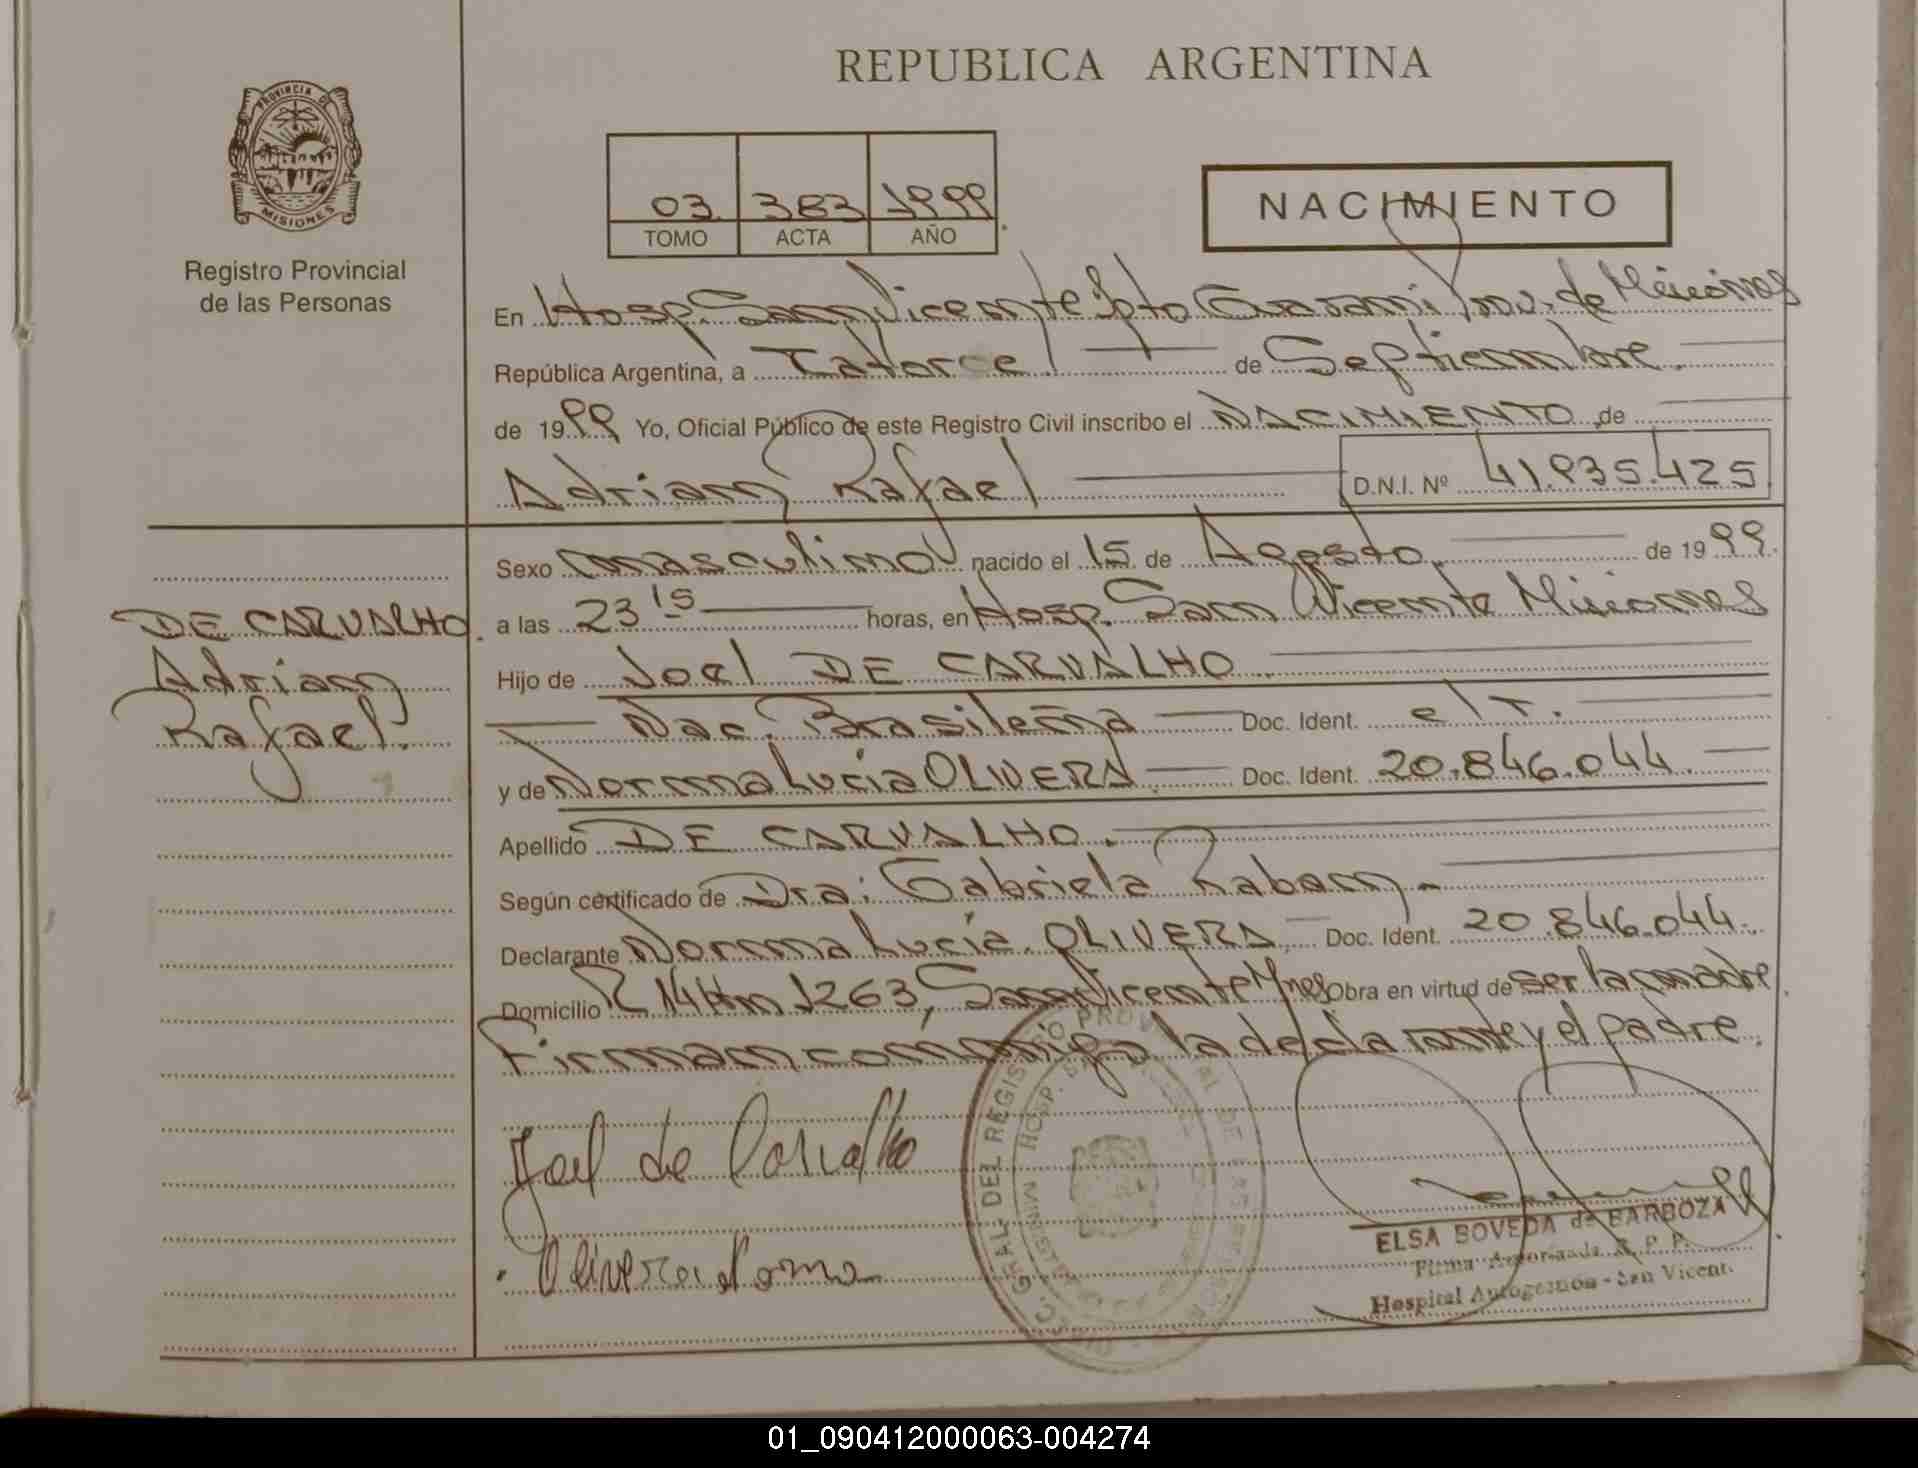 PROVINCIA DE
MISIONES
Registro Provincial
de las Personas
REPUBLICA ARGENTINA
03 383 1999
TOMO ACTA AÑO
NACIMIENTO
En Hosp. San Vicente Dpto Guarani Prov. de Misiones
República Argentina, a Catorce de Septiembre
de 1999 Yo, Oficial Público de este Registro Civil inscribo el NACIMIENTO de
Adrian Rafael D.N.I. Nº 41.935.425
DE CARVALHO
Adrian
Rafael.
Sexo masculino nacido el 15 de Agosto de 1999.
a las 23 15 horas, en Hosp. San Vicente Misiones
Hijo de Joel DE CARVALHO
Nac. Brasileña Doc. Ident. e/T.
y de Norma Lucia OLIVERA Doc. Ident. 20.846.044
Apellido DE CARVALHO.
Según certificado de Dra: Gabriela Raban
Declarante Norma Lucía OLIVERA Doc. Ident. 20.846.044.
Domicilio R 14 Km 1263, San Vicente Mnes Obra en virtud de ser la madre
Firman conmigo la declarante y el padre.
Joel de Carvalho
Olivera Norma
DIREC. GRAL. DEL REGISTRO PROVINCIAL DE LAS PERSONAS
HOSP. S
ELSA BOVEDA de BARBOZA
Firma Autorizada R. P. P.
Hospital Autogestion - San Vicent.
01_090412000063-004274